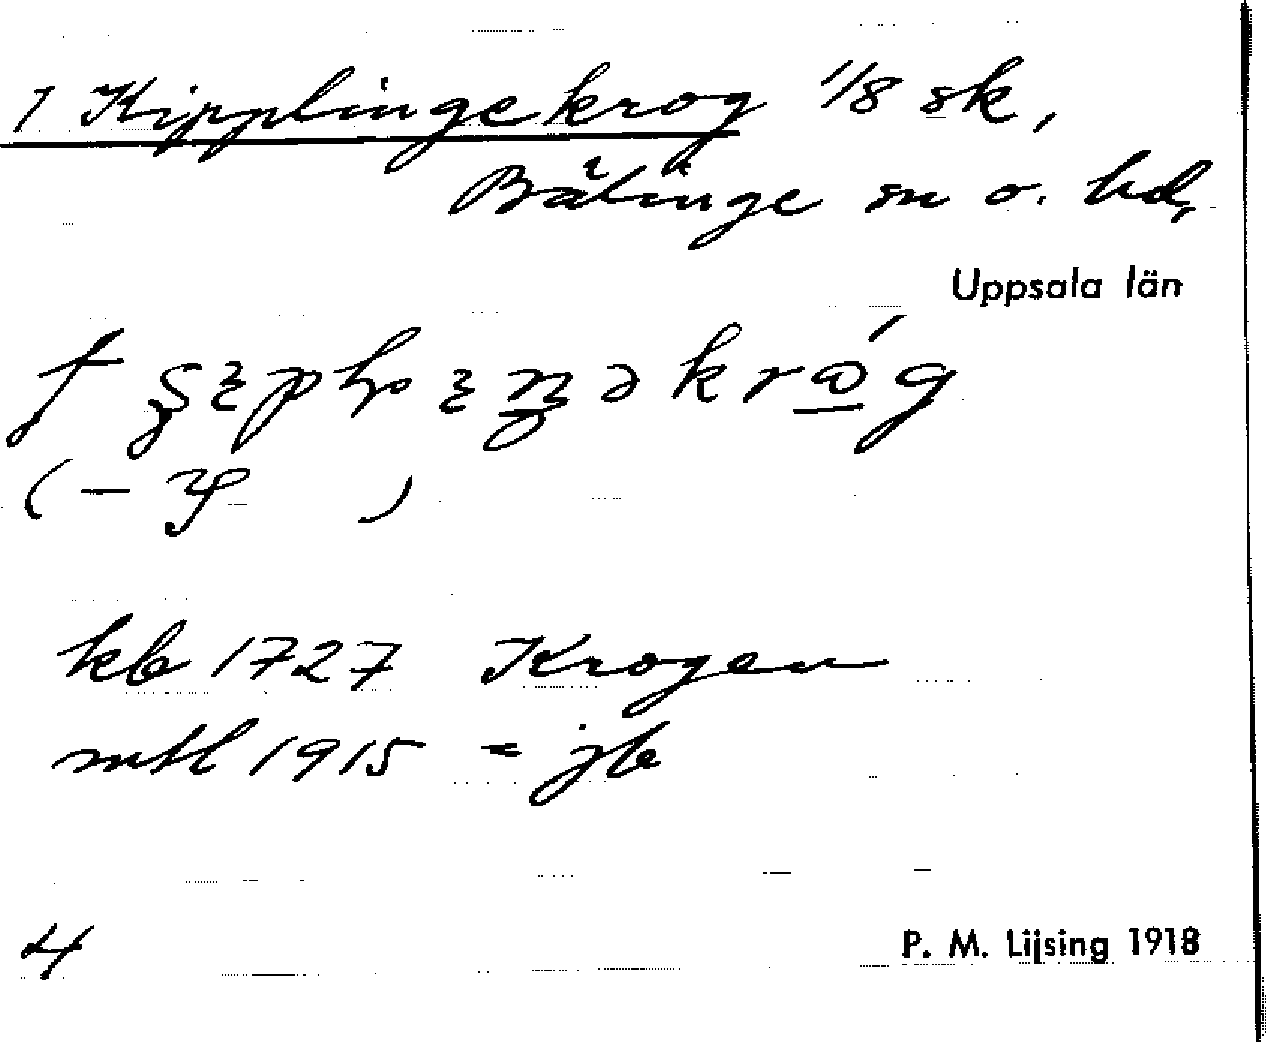 1 Kipplingekrog 1/8 sk,
Bälinge sn o. hd,
Uppsala län
kb 1727 Krogen
mtl 1915 = jb
4
P. M. Lijsing 1918